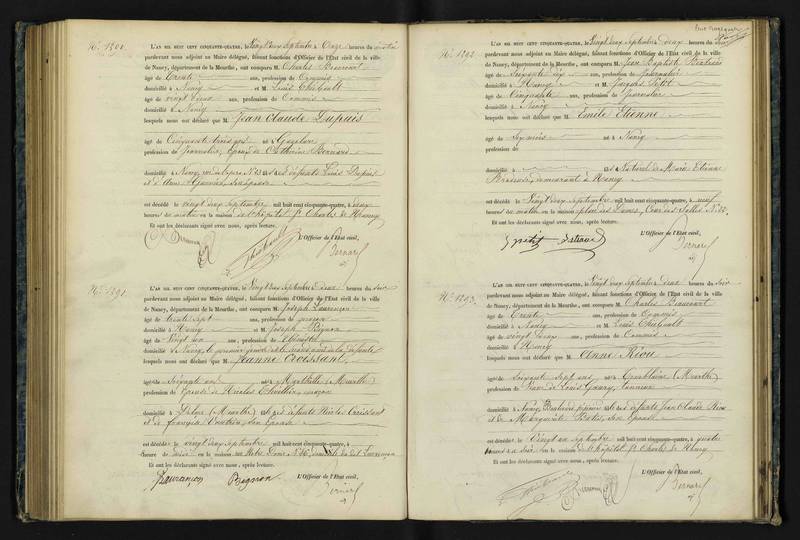 N° 1290.
L'AN MIL HUIT CENT CINQUANTE-QUATRE, le Vingt deux Septembre à Onze heures du matin
pardevant nous adjoint au Maire délégué, faisant fonctions d'Officier de l'État civil de la ville
de Nancy, département de la Meurthe, ont comparu M. Charles
âgé de Trente ans, profession de Commis
domicilié à Nancy et M. Louis Thiébault
âgé de vingt deux ans, profession de Commis
domicilié à Nancy
lesquels nous ont déclaré que M. Jean Claude Dupuis
âgé de Cinquante trois ans né à
profession de Journalier, Époux de Catherine
domicilié à Nancy, fils de défunts Louis Dupuis
et d'Anne son épouse
est décédé le vingt deux Septembre mil huit cent cinquante-quatre, à deux
heures du matin en la maison de l'hôpital St Charles de Nancy
Et ont les déclarants signé avec nous, après lecture.
L'Officier de l'État civil,
Thiébault
Bernard
N° 1291.
L'AN MIL HUIT CENT CINQUANTE-QUATRE, le Vingt deux Septembre à Deux heures du soir
pardevant nous adjoint au Maire délégué, faisant fonctions d'Officier de l'État civil de la ville
de Nancy, département de la Meurthe, ont comparu M. Joseph Laurençon
âgé de trente sept ans, profession de maçon
domicilié à Nancy et M. Joseph Bignon
âgé de Vingt un ans, profession de Ébéniste
domicilié à Nancy, le premier gendre de la défunte
lesquels nous ont déclaré que M. Jeanne Croissant
âgée de Soixante ans née à (Meurthe)
profession de Épouse de Nicolas maçon
domicilié à (Meurthe) fille de défunts Nicolas Croissant
et de Françoise son épouse
est décédée le vingt deux Septembre mil huit cent cinquante-quatre, à
heure de midi en la maison rue Notre Dame domicile du dit Laurençon
Et ont les déclarants signé avec nous, après lecture.
Laurançon Bignon L'Officier de l'État civil,
Bernard
N° 1292
L'AN MIL HUIT CENT CINQUANTE-QUATRE, le Vingt deux Septembre à deux heures du soir
pardevant nous adjoint au Maire délégué, faisant fonctions d'Officier de l'État civil de la ville
de Nancy, département de la Meurthe, ont comparu M. Jean Baptiste
âgé de Soixante dix ans, profession de Journalier
domicilié à Nancy et M. Jacques Petot
âgé de Cinquante ans, profession de Journalier
domicilié à Nancy
lesquels nous ont déclaré que M. Émile Etienne
âgé de dix mois né à Nancy
profession de
domicilié à fils Naturel de Marie Etienne
Brodeuse, demeurant à Nancy
est décédé le Vingt deux Septembre mil huit cent cinquante-quatre, à neuf
heures du matin en la maison place des Dames,
Et ont les déclarants signé avec nous, après lecture.
L'Officier de l'État civil,
Bernard
N° 1293.
L'AN MIL HUIT CENT CINQUANTE-QUATRE, le Vingt deux Septembre à Deux heures du soir
pardevant nous adjoint au Maire délégué, faisant fonctions d'Officier de l'État civil de la ville
de Nancy, département de la Meurthe, ont comparu M. Charles
âgé de Trente ans, profession de Commis
domicilié à Nancy et M. Louis Thiébault
âgé de vingt deux ans, profession de Commis
domicilié à Nancy
lesquels nous ont déclaré que M. Anne Riou
âgée de Soixante sept ans née à (Meurthe)
profession de Veuve de Louis Gaury, tanneur
domicilié à Nancy, fille de défunts Jean Claude Riou
et de Marguerite son épouse
est décédée le Vingt un Septembre mil huit cent cinquante-quatre, à quatre
heures du soir en la maison de l'hôpital St Charles de Nancy
Et ont les déclarants signé avec nous, après lecture.
L'Officier de l'État civil,
Thiébault
Bernard